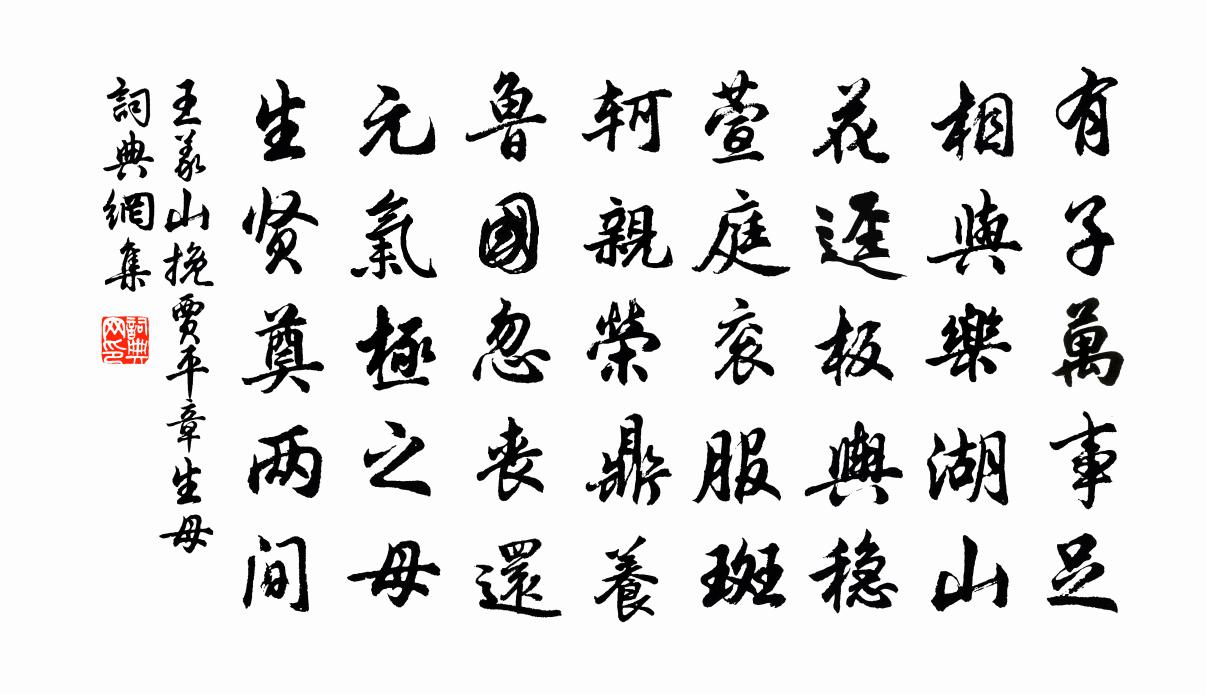 有子萬事足
相與樂湖山
花逕板輿稳
萱庭衮服斑
軻親榮鼎養
魯國忽丧還
元氣極之母
生贤奠两間
王義山挽賈平章生母
詞典網集
詞典网印